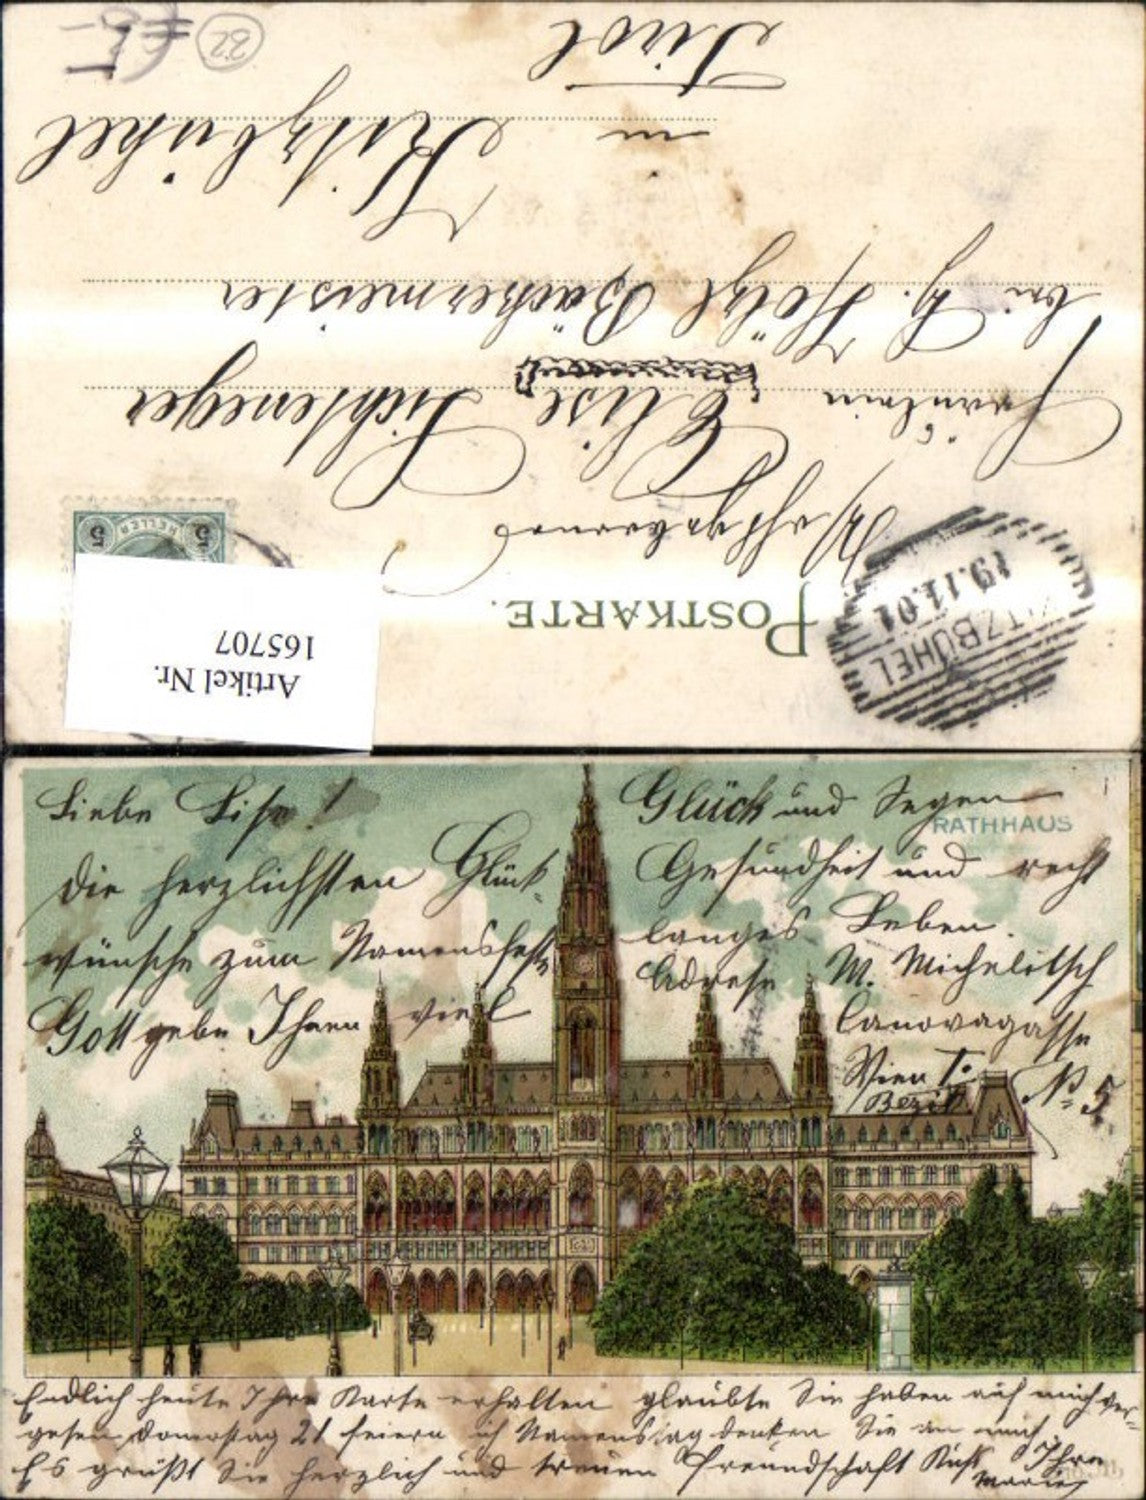 POSTKARTE.
Artikel Nr.
165707
5 HELLER 5
KITZBÜHEL
19.11.01
Wohlgeborene
Fräulein Elise Lichtenegger
bei H. Hölzl Bäckermeister
in Kitzbühel
Tirol
32
RATHHAUS
Liebe Lise!
Die herzlichsten Glück-
wünsche zum Namensfeste
Gott gebe Ihnen viel
Glück und Segen
Gesundheit und recht
langes Leben.
Adresse M. Michelitsch
Canovagasse
Wien I. No 5.
Bezirk
Endlich heute Ihre Karte erhalten glaubte Sie haben auf mich ver-
gessen Donnerstag 21 feiern ich Namenstag denken Sie an mich
Es grüßt Sie herzlich und treuen Freundschaft Kuß Ihre
Marie